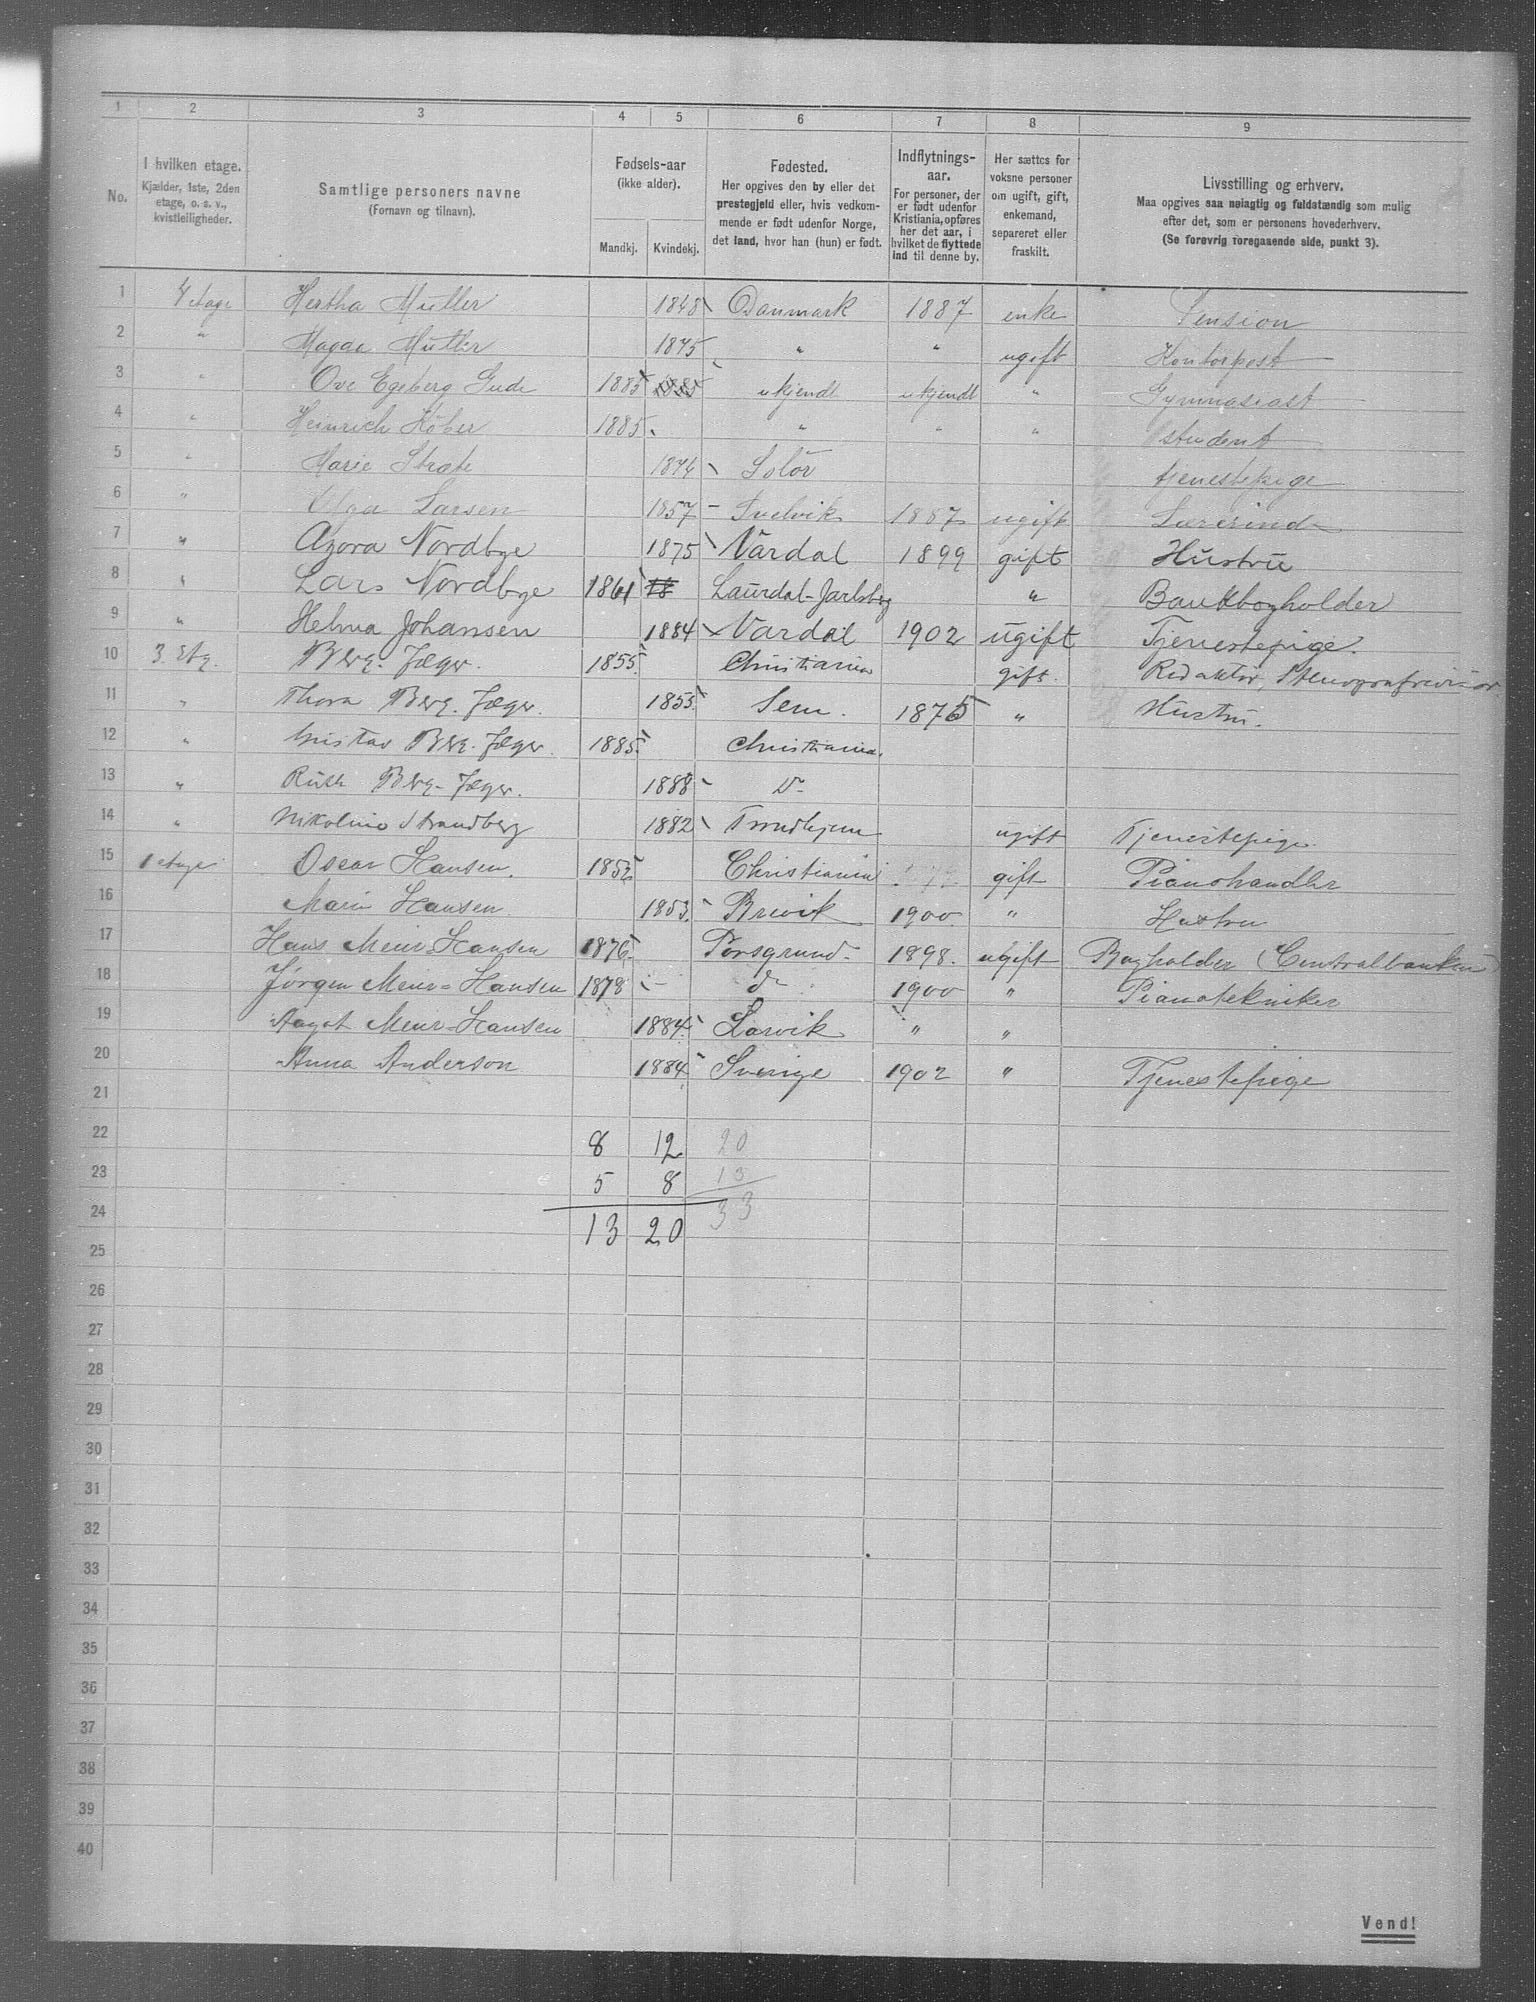 1 2 3 4 5 6 7 8 9
No.
I hvilken etage.
Kjælder, 1ste, 2den
etage, o. s. v.,
kvistleiligheder.
Samtlige personers navne
(Fornavn og tilnavn).
Fødsels-aar
(ikke alder).
Mandkj. Kvindekj.
Fødested.
Her opgives den by eller det
prestegjeld eller, hvis vedkom-
mende er født udenfor Norge,
det land, hvor han (hun) er født.
Indflytnings-
aar.
For personer, der
er født udenfor
Kristiania, opføres
her det aar, i
hvilket de flyttede
ind til denne by.
Her sættes for
voksne personer
om ugift, gift,
enkemand,
separeret eller
fraskilt.
Livsstilling og erhverv.
Maa opgives saa nøiagtig og fuldstændig som mulig
efter det, som er personens hovederhverv.
(Se forøvrig foregaaende side, punkt 3).
1 4 etage Hertha Muller 1848 Danmark 1887 enke Pension
2 " Magda Muller 1875 " " ugift Kontorpost
3 " Ove Egeberg Gude 1885 1885 ukjendt ukjendt " Gymnasiast
4 " Heinrich Köber 1885 " " " student
5 " Marie 1874 Solör tjenestepige
6 " Olga Larsen 1857 Svelvik 1887 ugift Lærerinde
7 " Azora Nordbye 1875 Vardal 1899 gift Hustru
8 " Lars Nordbye 1861 18 Laurdal-Jarlsberg " Bankbogholder
9 " Helma Johansen 1884 Vardal 1902 ugift Tjenestepige.
10 3. Etg. Berg-Jæger. 1855 Christiania gift. Redaktör, Stenografrevisor
11 " Thora Berg-Jæger. 1855 Sem. 1875 " Hustru.
12 " Gustav Berg-Jæger. 1885 Christiania.
13 " Ruth Berg-Jæger. 1888 Do
14 " Nikoline Strandberg 1882 Trondhjem ugift Tjenestepige.
15 1 etage Oscar Hansen. 1852 Christiania gift Pianohandler
16 Marie Hansen 1853. Brevik 1900 " Hustru
17 Hans Meier-Hansen 1876 Porsgrund 1898. ugift Bogholder (Centralbanken)
18 Jörgen Meier-Hansen 1878 do 1900 " Pianotekniker
19 Aagot Meier-Hansen 1884 Larvik " "
20 Anna Anderson 1884 Sverige 1902 " Tjenestepige
21
22 8 12 20
23 5 8 13
24 13 20 33
25
26
27
28
29
30
31
32
33
34
35
36
37
38
39
40
Vend!